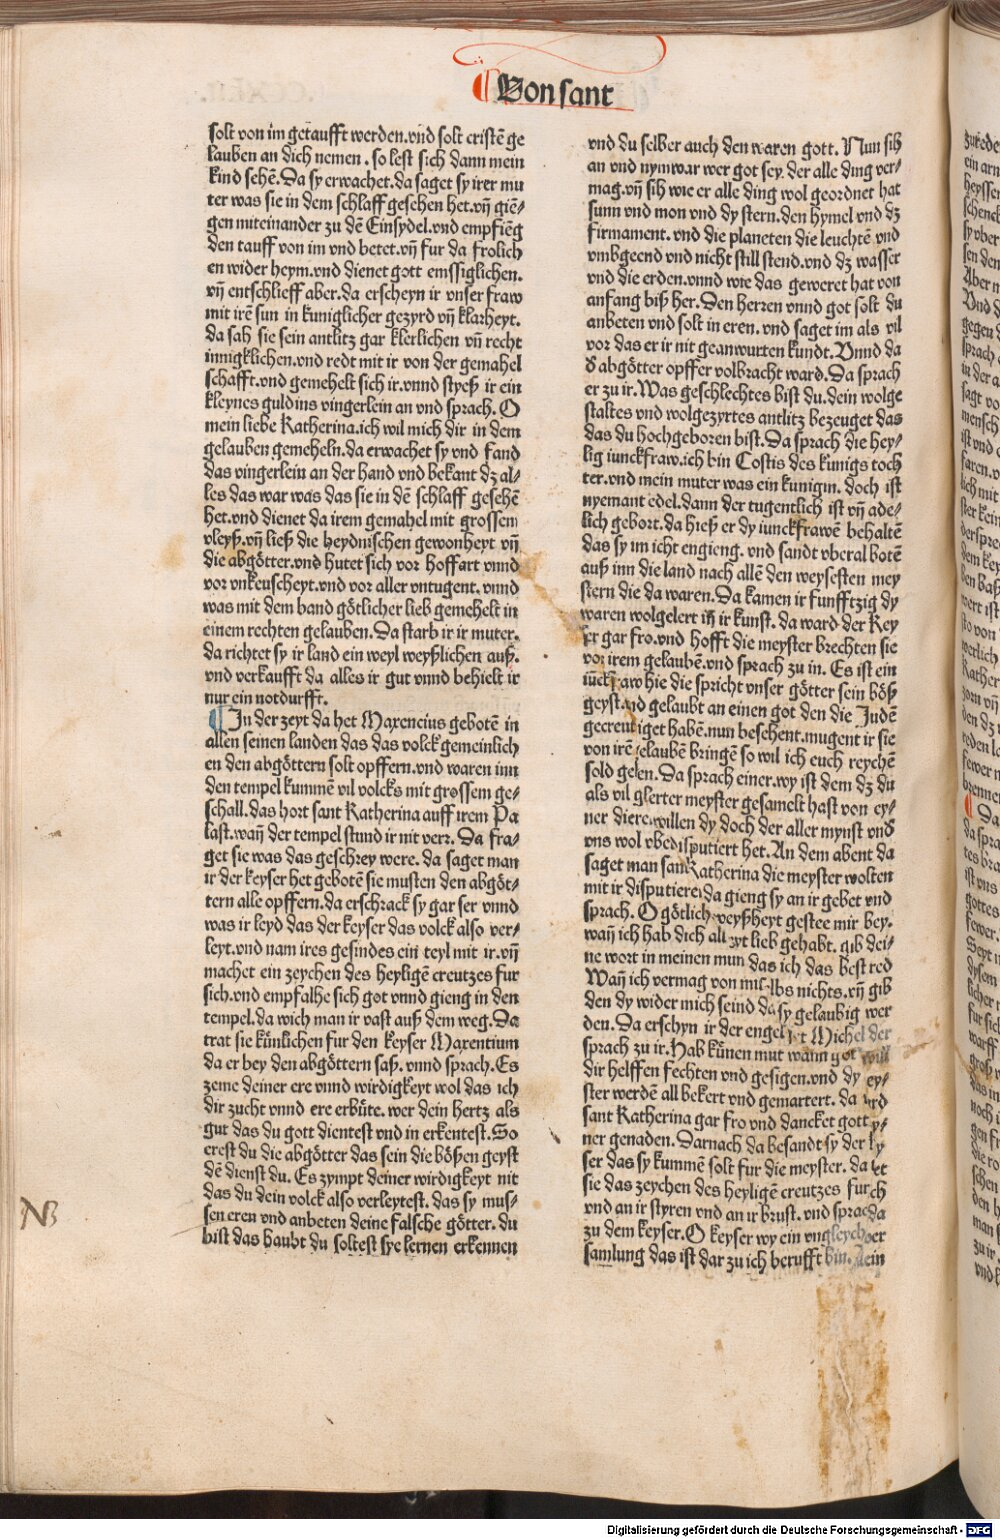 Von sant
solt von im getaufft werden.vnd solt cristē ge
lauben an dich nemen. so lest sich dann mein
kind sehē. Da sy erwachet.da saget sy irer mu
ter was sie in dem schlaff gesehen het.vñ giē⸗
gen miteinander zu dē Einsydel.vnd empfiēg
den tauff von im vnd betet.vñ fur da frolich
en wider heym.vnd dienet gott emssiglichen.
vñ entschlieff aber.da erscheyn ir vnser fraw
mit irē sun in kuniglicher gezyrd vñ klarheyt.
da sah sie sein antlitz gar klerlichen vñ recht
innigklichen.vnd redt mit ir von der gemahel
schafft.vnd gemehelt sich ir.vnnd styeß ir ein
kleynes guldins vingerlein an vnd sprach. O
mein liebe Katherina.ich wil mich dir in dem
gelauben gemeheln.da erwachet sy vnd fand
das vingerlein an der hand vnd bekant dz al⸗
les das war was das sie in dē schlaff gesehē
het.vnd dienet da irem gemahel mit grossem
vleyß.vñ ließ die heydnischen gewonheyt vñ
die abgötter.vnd hutet sich vor hoffart vnnd
vor vnkeuscheyt.vnd vor aller vntugent. vnnd
was mit dem band götlicher lieb gemehelt in
einem rechten gelauben. Da starb ir ir muter.
da richtet sy ir land ein weyl weyßlichen auß.
vnd verkaufft da alles ir gut vnnd behielt ir
nur ein notdurfft.
In der zeyt da het Maxencius gebotē in
allen seinen landen das das volck gemeinlich
en den abgöttern solt opffern.vnd waren inn
den tempel kummē vil volcks mit grossem ge⸗
schall.das hort sant Katherina auff irem Pa
last.wañ der tempel stund ir nit verr. Da fra⸗
get sie was das geschrey were. da saget man
ir der keyser het gebotē sie musten den abgöt⸗
tern alle opffern.da erschrack sy gar ser vnnd
was ir leyd das der keyser das volck also ver⸗
leyt.vnd nam ires gesindes ein teyl mit ir.vñ
machet ein zeychen des heyligē creutzes fur
sich.vnd empfalhe sich got vnnd gieng in den
tempel.da wich man ir vast auß dem weg. Da
trat sie künlichen fur den keyser Maxentium
da er bey den abgöttern saß. vnnd sprach. Es
zeme deiner ere vnnd wirdigkeyt wol das ich
dir zucht vnnd ere erbüte. wer dein hertz als
gut das du gott dientest vnd in erkentest. So
erest du die abgötter das sein die bößen geyst
dē dienst du. Es zympt deiner wirdigkeyt nit
das du dein volck also verleytest. das sy mus⸗
sen eren vnd anbeten deine falsche götter. du
bist das haubt du soltest sye lernen erkennen
vnd du selber auch den waren gott. Nun sih
an vnd nym war wer got sey. der alle ding ver⸗
mag.vñ sih wie er alle ding wol geordnet hat
sunn vnd mon vnd dy stern.den hymel vnd dz
firmament. vnd die planeten die leuchtē vnd
vmbgeend vnd nicht still stend.vnd dz wasser
vnd die erden.vnnd wie das geweret hat von
anfang biß her. Den herren vnnd got solt du
anbeten vnd solt in eren. vnd saget im als vil
vor das er ir nit geanwurten kundt. Vnnd da
d abgötter opffer volbracht ward. Da sprach
er zu ir. Was geschlechtes bist du.dein wolge
staltes vnd wolgezyrtes antlitz bezeuget das
das du hochgeboren bist. Da sprach die hey⸗
lig iunckfraw.ich bin Costis des kunigs toch
ter.vnd mein muter was ein kunigin. doch ist
nyemant edel.dann der tugentlich ist vñ ade⸗
lich gebort.da hieß er dy iunckfrawē behaltē
das sy im icht engieng. vnd sandt vberal botē
auß inn die land nach allē den weysesten mey
stern die da waren. Da kamen ir funfftzig dy
waren wolgelert in ir kunst. da ward der Key
ser gar fro.vnd hofft die meyster brechten sie
von irem gelaubē.vnd sprach zu in. Es ist ein
iūckfraw hie die spricht vnser götter sein böß
geyst.vnd gelaubt an einen got den die Judē
gecreutziget habē.nun besehent.mugent ir sie
von irē gelaubē bringē so wil ich euch reychē
sold geben. Da sprach einer.wy ist dem dz du
als vil glerter meyster gesamelt hast von ey⸗
ner diern willen dy doch der aller mynst vnd
vns wol vbedisputiert het. An dem abent da
saget man sant Katherina die meyster wolten
mit ir disputieren da gieng sy an ir gebet vnd
sprach. O götlich weyßheyt gestee mir bey.
wañ ich hab dich allzeyt lieb gehabt. gib dei⸗
ne wort in meinen mund das ich das best red
Wañ ich vermag von mir selbs nichts.vñ gib
den dy wider mich seind das sy gelaubig wer
den. Da erschyn ir der engel sant Michel der
sprach zu ir. Hab künen mut wann got will
dir helffen fechten vnd gesigen.vnd dy mey⸗
ster werdē all bekert vnd gemartert. da ward
sant Katherina gar fro vnd dancket gott sey⸗
ner genaden. Darnach da besandt sy der key
ser das sy kummē solt fur die meyster. da tet
sie das zeychen des heyligē creutzes fur sich
vnd an ir styren vnd an ir brust. vnd sprach da
zu dem keyser. O keyser wy ein vngleych er
samlung das ist dar zu ich berufft bin. dein
NB
Digitalisierung gefördert durch die Deutsche Forschungsgemeinschaft - DFG